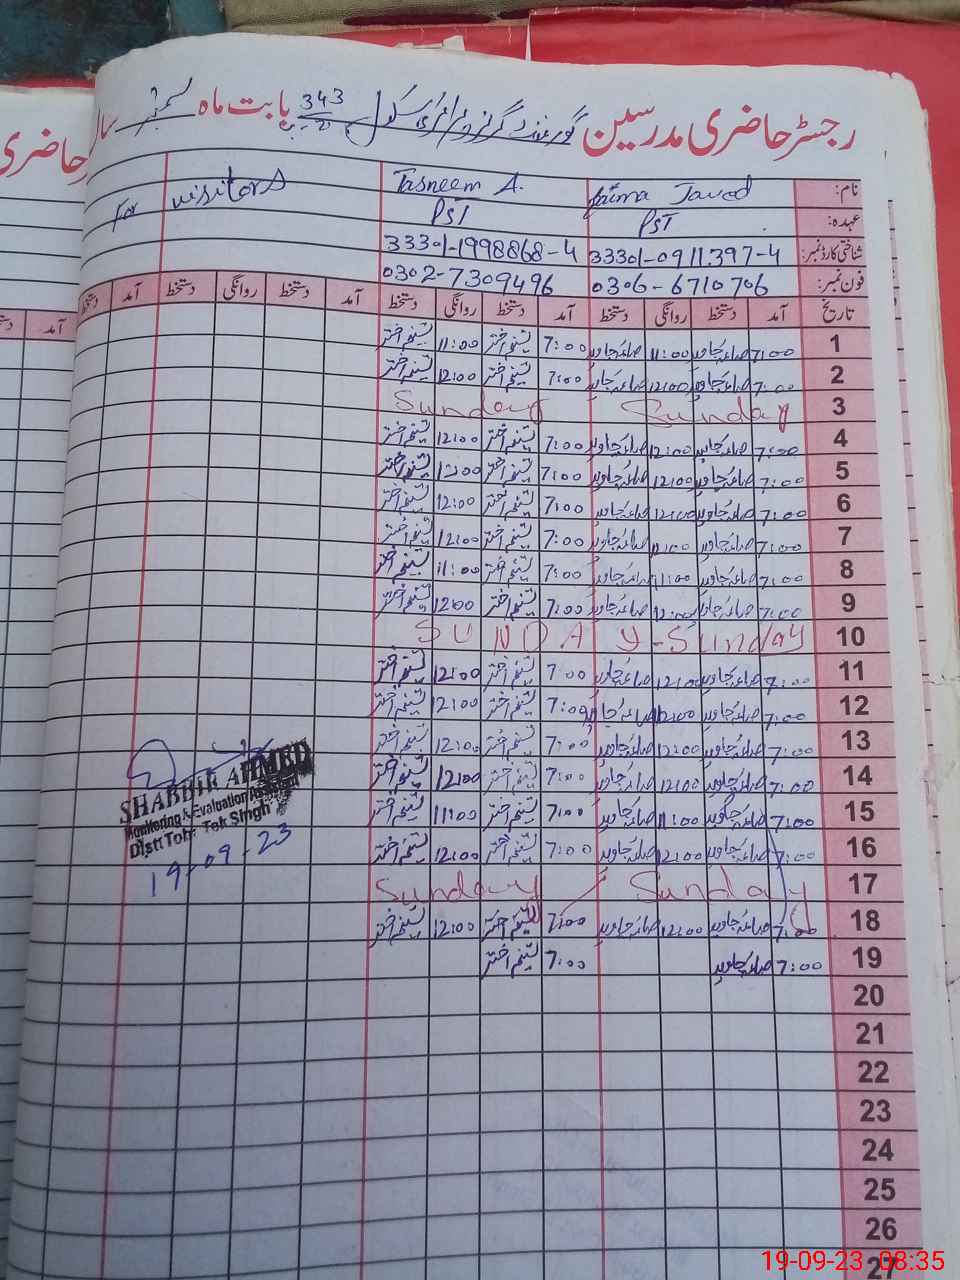 رجسٹر حاضری مدرسین گورنمنٹ گرلز پرائمری سکول 343 بابت ماہ ستمبر سال
نام: Saima Javed Tasneem A. For visitors
عہدہ: PST PST
شناختی کارڈ نمبر: 33301-0911397-4 33301-1998868-4
فون نمبر: 0306-6710706 0302-7309496
تاریخ آمد دستخط روانگی دستخط آمد دستخط روانگی دستخط آمد دستخط روانگی دستخط آمد دستخط
1 7:00 صائمہ جاوید 11:00 صائمہ جاوید 7:00 تسنیم اختر 11:00 تسنیم اختر
2 7:00 صائمہ جاوید 12:00 صائمہ جاوید 7:00 تسنیم اختر 12:00 تسنیم اختر
3 Sunday Sunday
4 7:00 صائمہ جاوید 12:00 صائمہ جاوید 7:00 تسنیم اختر 12:00 تسنیم اختر
5 7:00 صائمہ جاوید 12:00 صائمہ جاوید 7:00 تسنیم اختر 12:00 تسنیم اختر
6 7:00 صائمہ جاوید 12:00 صائمہ جاوید 7:00 تسنیم اختر 12:00 تسنیم اختر
7 7:00 صائمہ جاوید 12:00 صائمہ جاوید 7:00 تسنیم اختر 12:00 تسنیم اختر
8 7:00 صائمہ جاوید 11:00 صائمہ جاوید 7:00 تسنیم اختر 11:00 تسنیم اختر
9 7:00 صائمہ جاوید 12:00 صائمہ جاوید 7:00 تسنیم اختر 12:00 تسنیم اختر
10 SUNDAY-Sunday
11 7:00 صائمہ جاوید 12:00 صائمہ جاوید 7:00 تسنیم اختر 12:00 تسنیم اختر
12 7:00 صائمہ جاوید 12:00 صائمہ جاوید 7:00 تسنیم اختر 12:00 تسنیم اختر
13 7:00 صائمہ جاوید 12:00 صائمہ جاوید 7:00 تسنیم اختر 12:00 تسنیم اختر
14 7:00 صائمہ جاوید 12:00 صائمہ جاوید 7:00 تسنیم اختر 12:00 تسنیم اختر
15 7:00 صائمہ جاوید 11:00 صائمہ جاوید 7:00 تسنیم اختر 11:00 تسنیم اختر
16 7:00 صائمہ جاوید 12:00 صائمہ جاوید 7:00 تسنیم اختر 12:00 تسنیم اختر
17 Sunday Sunday
18 7:00 صائمہ جاوید 12:00 صائمہ جاوید 7:00 تسنیم اختر 12:00 تسنیم اختر
19 7:00 صائمہ جاوید 7:00 تسنیم اختر
20
21
22
23
24
25
26
27
SHABBIR AHMED
Monitoring & Evaluation Assistant
Distt Toba Tek Singh
19-09-23
حاضری
19-09-23 08:35